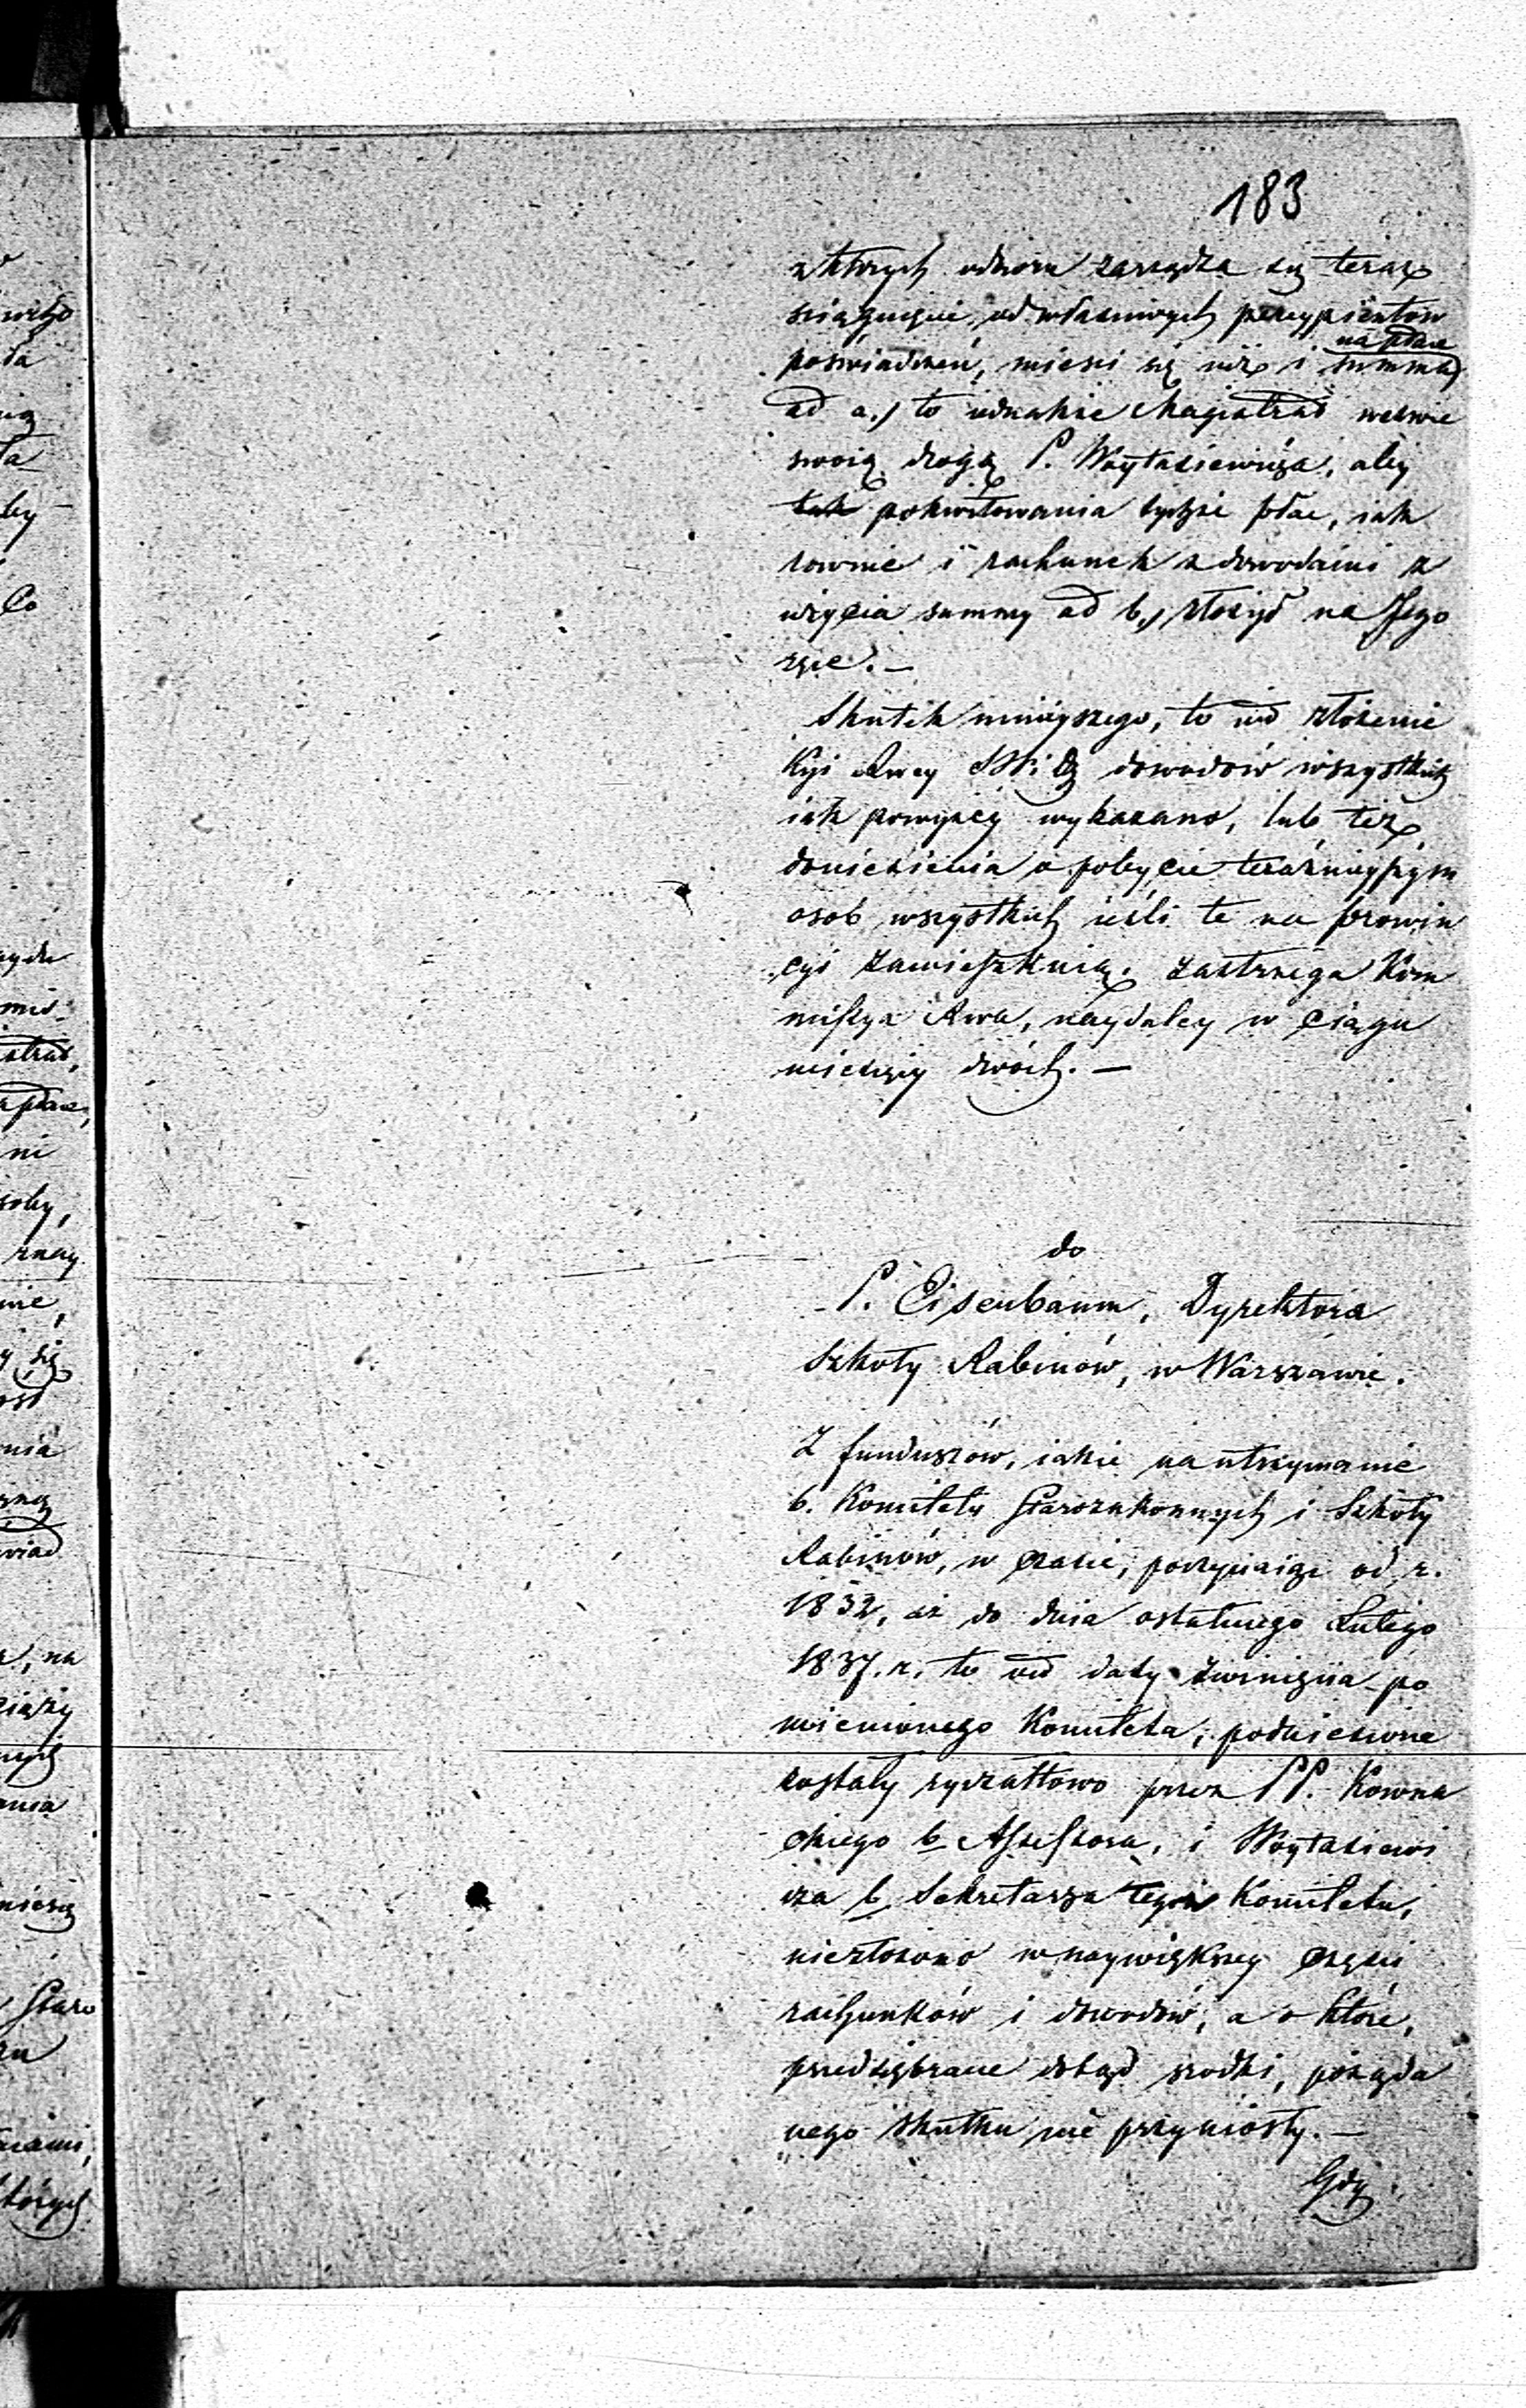 183
z których odbioru zarządza się teraz
sciągnięcie od własciwych percypientów
na płace
poświadczeń, miesci się iuż i summa
ad a.) to iednakże Magistrat wezwie
swoią drogą P. Woytasiewicza, aby
tak pokwitowania tychże płac, iak
rownie i rachunek z dowodami z
użycia summy ad b.) złożył na Jego
ręce. —
Skutek ninieyszego, to iest złożenie
Kyi Rwey SWiD dowodów wszystkich
iak powyżey wykazano, lub też
doniesienia o pobycie teraznieyszym
osob wszystkich ieśli te na prowin
cyi zamieszkuią. zastrzega Kom
missya Rwa, naydaley w ciągu
miesięcy dwóch. —
do
P. Eisenbaum, Dyrektora
Szkoły Rabinów, w Warszawie.
Z funduszów, iakie na utrzymanie
b. Komitetu Starozakonnych i Szkoły
Rabinów, w czasie, poczynaiąc od r.
1832, aż do dnia ostatniego Lutego
1837. r. to iest daty zwinięcia po
mienionego Komitetu, podniesione
zostały ryczałtowo przez PP. Kowna
ckiego b. Assessora, i Woytasiewi
cza b. Sekretarza tegoż Komitetu,
niezłożono w naywiększey części
rachunków i dowodów, a o które,
przedsiębrane dotąd srodki, pożąda
nego skutku nie przyniosły. —
Gdy